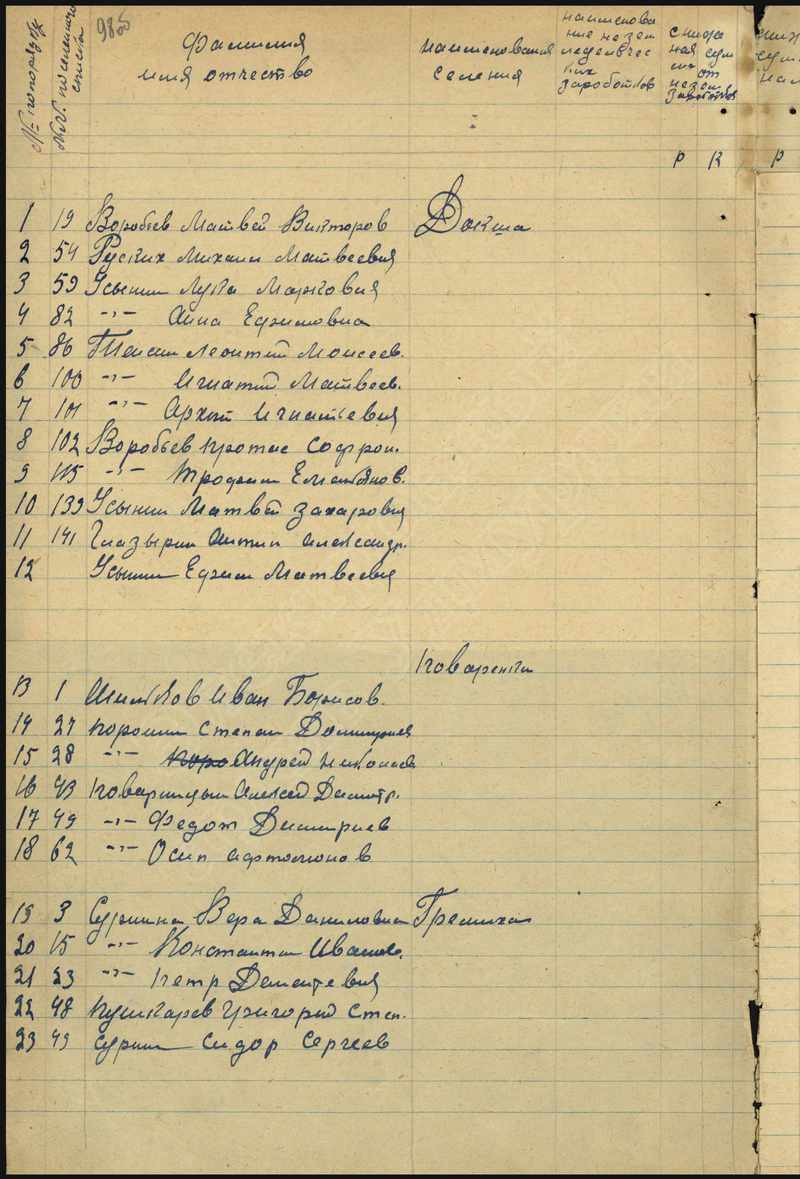 № по порядку
№№ поселенного списка
98об
Фамилия
имя отчество
наименования
селения
наименова
ние незем
леделчес
ких
заработков
скида
ная сум
ма от
незем
заработков
Р К Р
1 19 Воробьев Матвей Викторов Докша
2 54 Русских Михаил Матвеевич
3 59 Усынин Лука Маркович
4 82 -"- Анна Ефимовна
5 86 Леонтий Моисеев.
6 100 -"- Игнатий Матвеев.
7 101 -"- Архип Игнатьевич
8 102 Воробьев Протас Софрон.
9 115 -"- Трофим Емельянов.
10 139 Усынин Матвей Захарович
11 141 Глазырин Антип Александр.
12 Усынин Ефим Матвеевич
Поваренки
13 1 Шильков Иван Борисов.
14 27 Поромин Степан Дмитриев
15 28 -"- Андрей Николаев
16 43 Поваринцын Алексей Дмитр.
17 49 -"- Федот Дмитриев
18 62 -"- Осип Афтомонов
19 3 Сурнина Вера Даниловна Гремиха
20 15 -"- Константин Иванов.
21 23 -"- Петр Дементевич
22 48 Пушкарев Григорий Степ.
23 49 Сурнин Сидор Сергеев